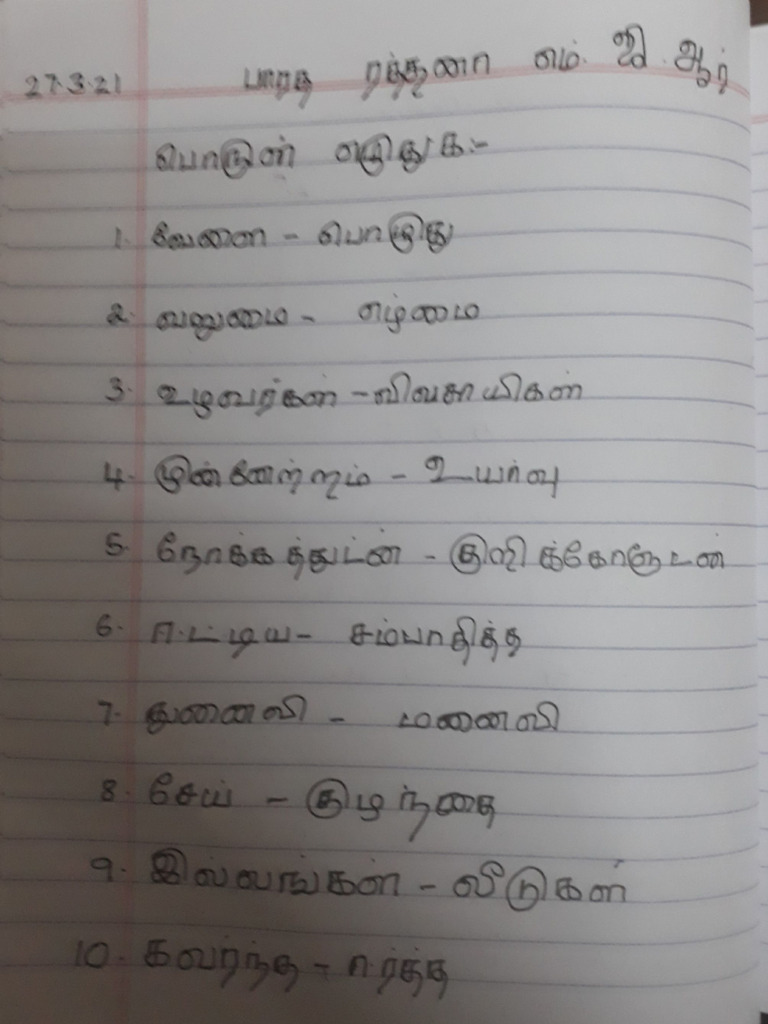 27.3.21 பாரத ரத்னா எம். ஜி. ஆர்
பொருள் எழுதுக:-
1. வேளை - பொழுது
2. வறுமை - ஏழ்மை
3. உழவர்கள் - விவசாயிகள்
4. முன்னேற்றம் - உயர்வு
5. நோக்கத்துடன் - குறிக்கோளுடன்
6. ஈட்டிய - சம்பாதித்த
7. துணைவி - மனைவி
8. சேய் - குழந்தை
9. இல்லங்கள் - வீடுகள்
10. கவர்ந்த - ஈர்த்த